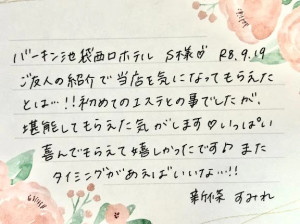 バーキン池袋西口ホテル S様♡ R8.9.19
ご友人の紹介で当店を気になってもらえた
とは…!!初めてのエステとの事でしたが、
堪能してもらえた気がします♡いっぱい
喜んでもらえて嬉しかったです♪また
タイミングがあえばいいな…!!
新條 すみれ